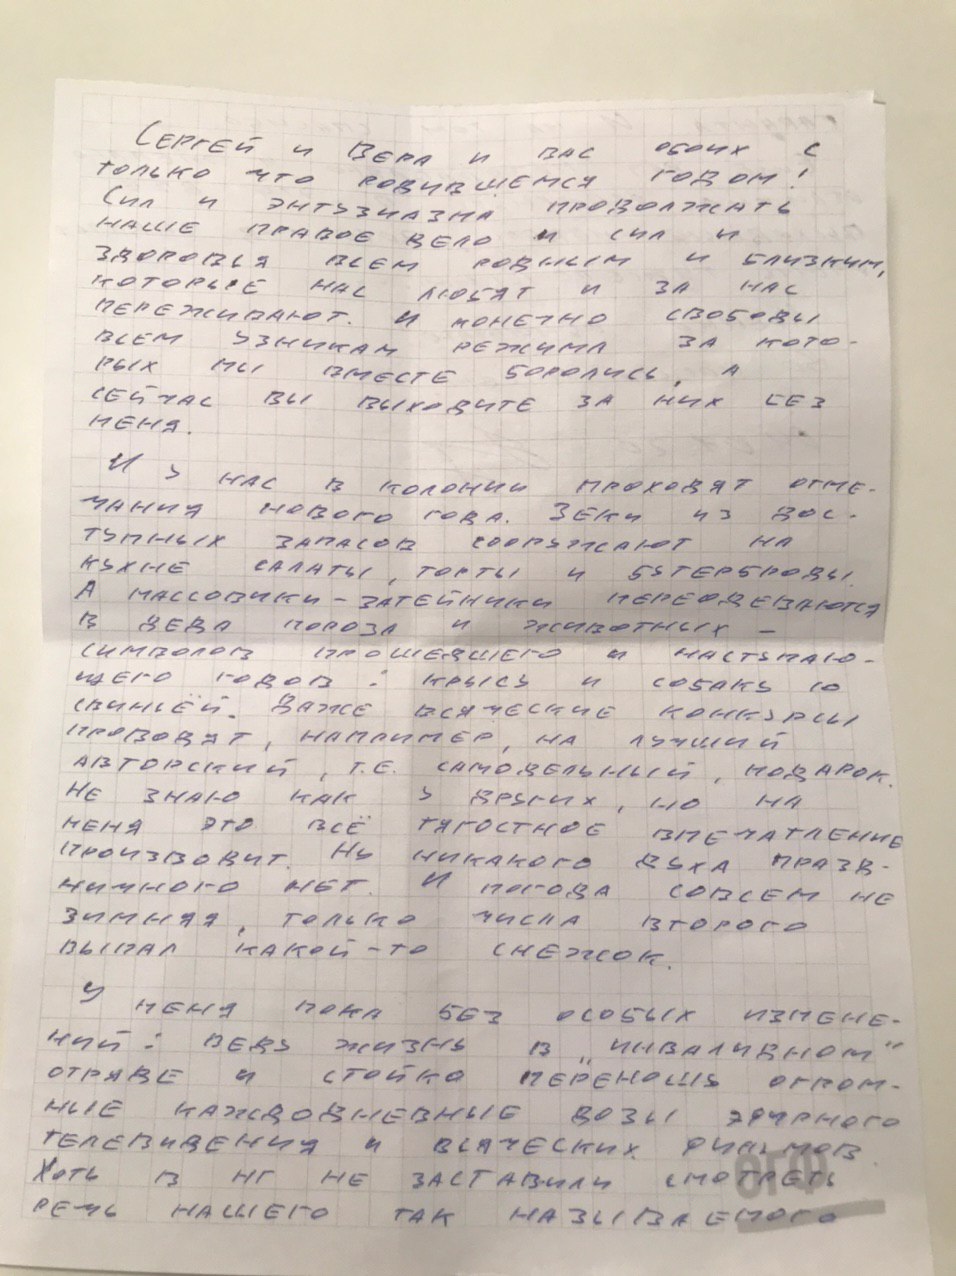 Сергей и Вера и вас обоих с
только что родившемся годом!
Сил и энтузиазма продолжать
наше правое дело и сил и
здоровья всем родным и близким,
которые нас любят и за нас
переживают. И конечно свободы
всем узникам режима за кото-
рых мы вместе боролись, а
сейчас вы выходите за них без
меня.
И у нас в колонии проходят отме-
чания нового года. Зеки из дос-
тупных запасов сооружают на
кухне салаты, торты и бутерброды.
А массовики-затейники переодеваются
в деда мороза и животных –
символов прошедшего и наступаю-
щего годов: крысу и собаку со
свиньёй. Даже всяческие конкурсы
проводят, например, на лучший
авторский, т.е. самодельный, подарок.
Не знаю как у других, но на
меня это всё тягостное впечатление
производит. Ну никакого духа празд-
ничного нет. И погода совсем не
зимняя, только числа второго
выпал какой-то снежок.
У меня пока без особых измене-
ний: веду жизнь в „инвалидном"
отряде и стойко переношу огром-
ные каждодневные дозы эфирного
телевидения и всяческих фильмов
Хоть в НГ не заставили смотреть
речь нашего так называемого